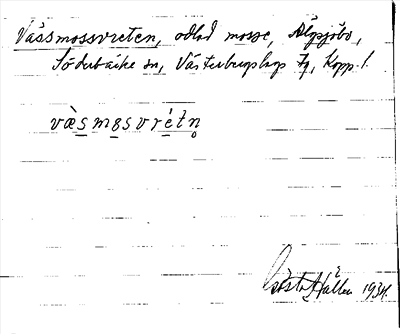 Vässmossvreten, odlad mosse, Älgsjöbo,
Söderbärke sn, Västerbergslags tg, Kopp. l.
væ̀smɷsvrétn̥
Gösta Hallén 1934.